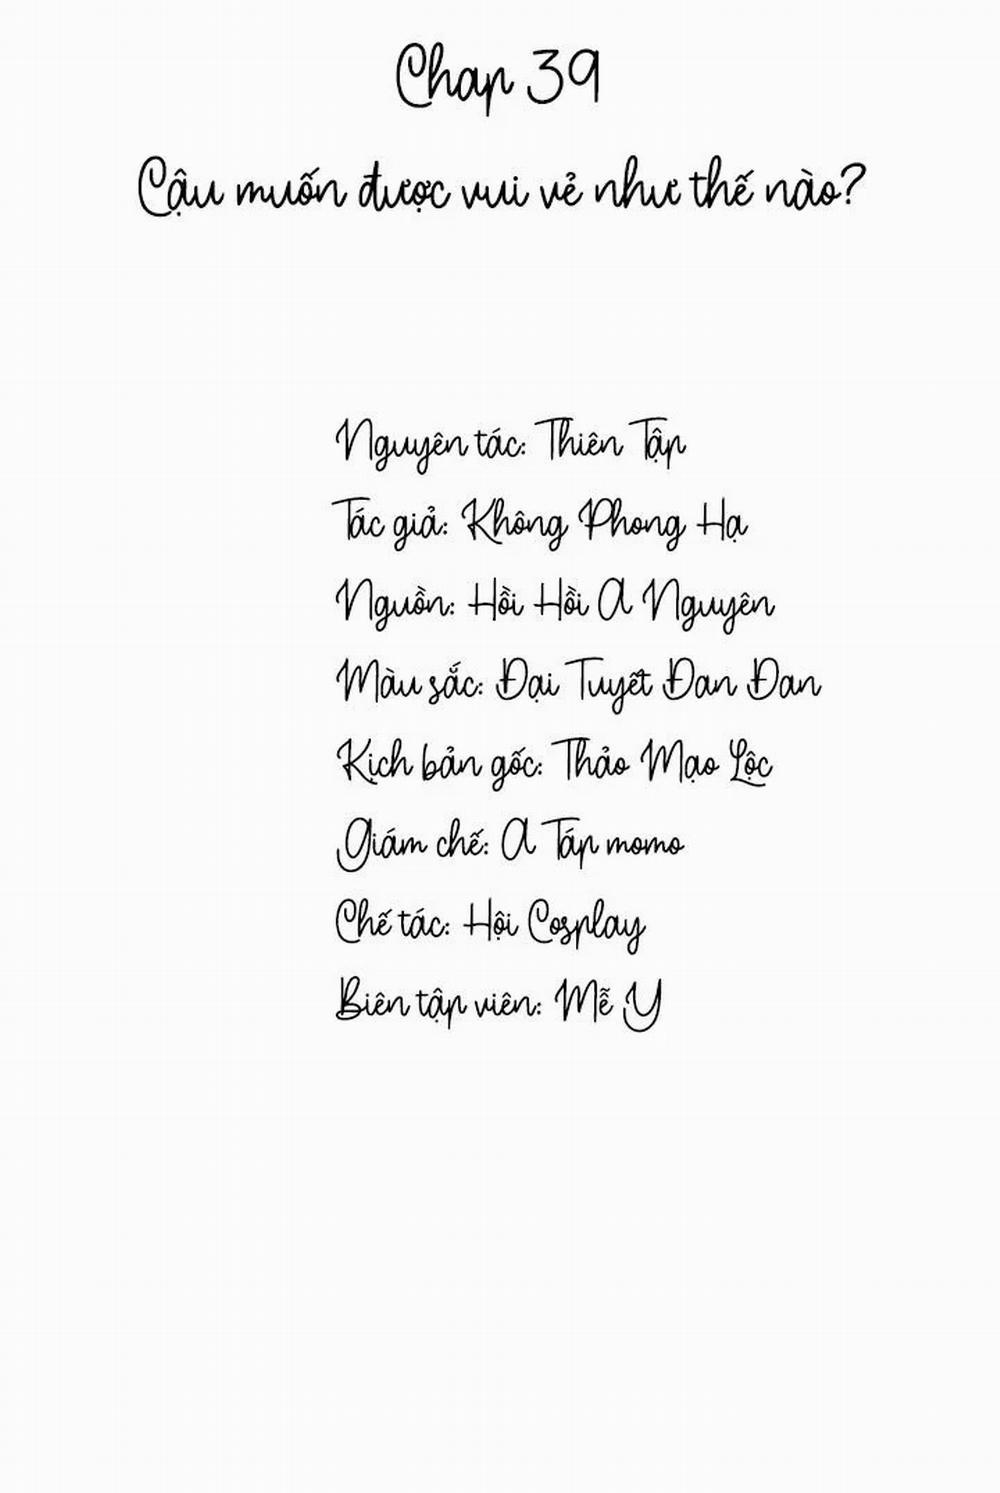 Chap 39
Cậu muốn được vui vẻ như thế nào?
Nguyên tác: Thiên Tập
Tác giả: Không Phong Hạ
Nguồn: Hồi Hồi A Nguyên
Màu sắc: Đại Tuyết Đan Đan
Kịch bản gốc: Thảo Mạo Lộc
Giám chế: A Táp momo
Chế tác: Hội Cosplay
Biên tập viên: Mễ Y